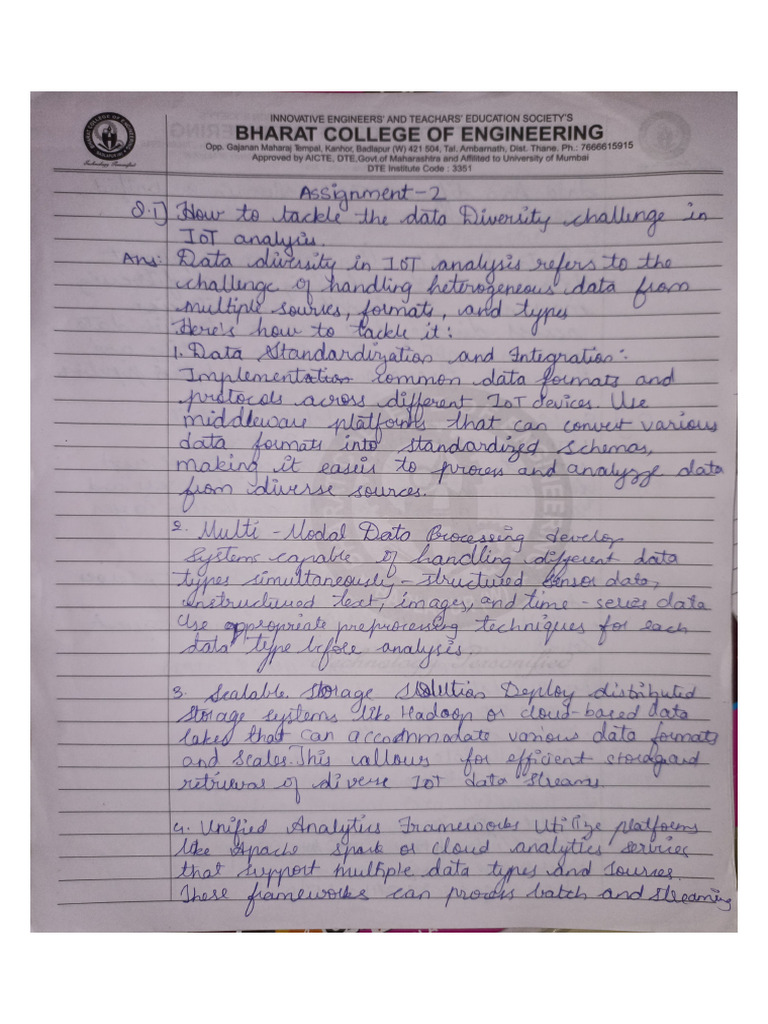 INNOVATIVE ENGINEERS' AND TEACHARS' EDUCATION SOCIETY'S
BHARAT COLLEGE OF ENGINEERING
Opp. Gajanan Maharaj Tempal, Kanhor, Badlapur (W) 421 504, Tal. Ambarnath, Dist. Thane, Ph.: 7666615915
Approved by AICTE, DTE,Govt.of Maharashtra and Affilited to University of Mumbai
DTE Institute Code : 3351
Assignment-2
Q.1] How to tackle the data Diversity challenge in
IoT analysis.
Ans: Data diversity in IoT analysis refers to the
challenge of handling heterogeneous data from
multiple sources, formats, and types
Here's how to tackle it:
1. Data Standardization and Integration:
Implementation common data formats and
protocols across different IoT devices. Use
middleware platforms that can convert various
data formats into standardized schemas,
making it easeis to process and analyzze data
from diverse sources.
2. Multi-Modal Data Processing develop
systems capable of handling different data
types simultaneously-structured sensor data,
unstructured text, images, and time-series data
Use appropriate preprocessing techniques for each
data type before analysis
3. Scalable Storage Solution Deploy distributed
storage systems like Hadoop or cloud-based data
lakes that can accommodate various data formats
and scales. This allows for efficient storage and
retrieval of diverse IoT data streams.
4. Unified Analytics Frameworks Utilize platforms
like Apache spark or cloud analytics services
that support multiple data types and sources.
These frameworks can process batch and streaming